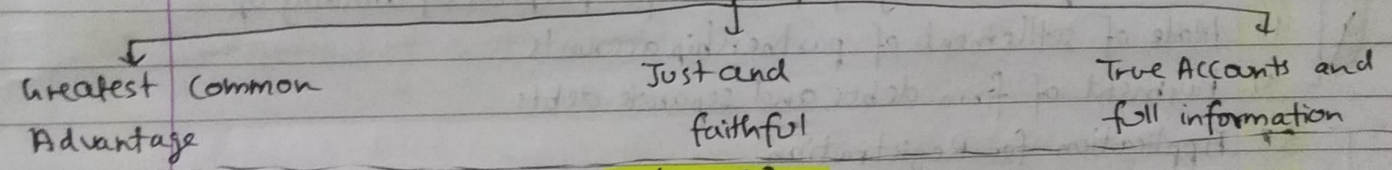 Greatest Common
Advantage
Just and
faithful
True Accounts and
full information